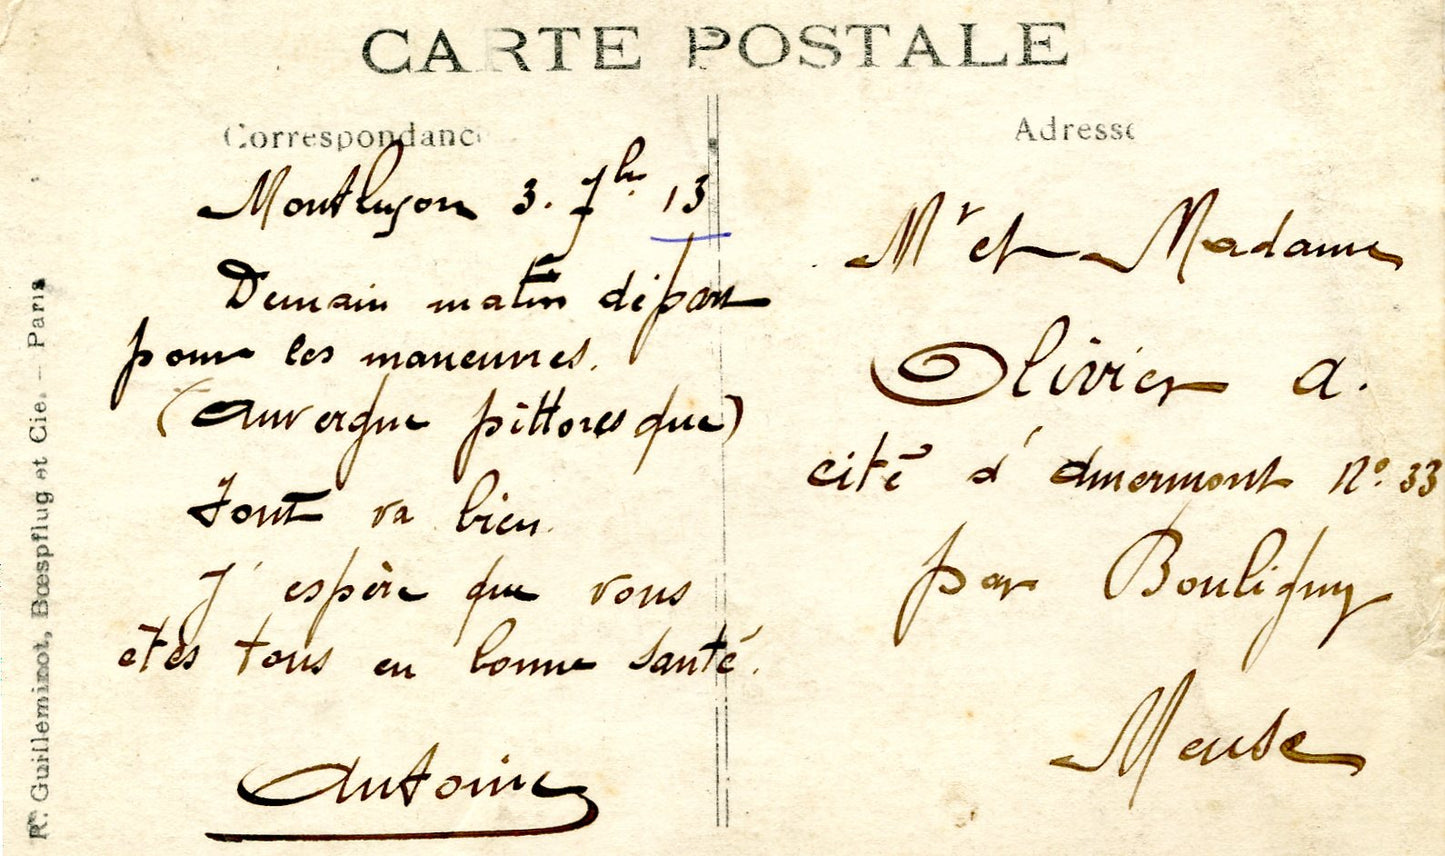 CARTE POSTALE
Correspondance
Montluçon 3. 7bre 13
Demain matin départ
pour les maneuvres.
(Auvergne pittoresque)
Tout va bien.
J'espère que vous
êtes tous en bonne santé.
Antoine
Adresse
Mr et Madame
Olivier a.
cité d'Amermont No. 33
par Bouligny
Meuse
R. Guilleminot, Bœspflug et Cie. – Paris